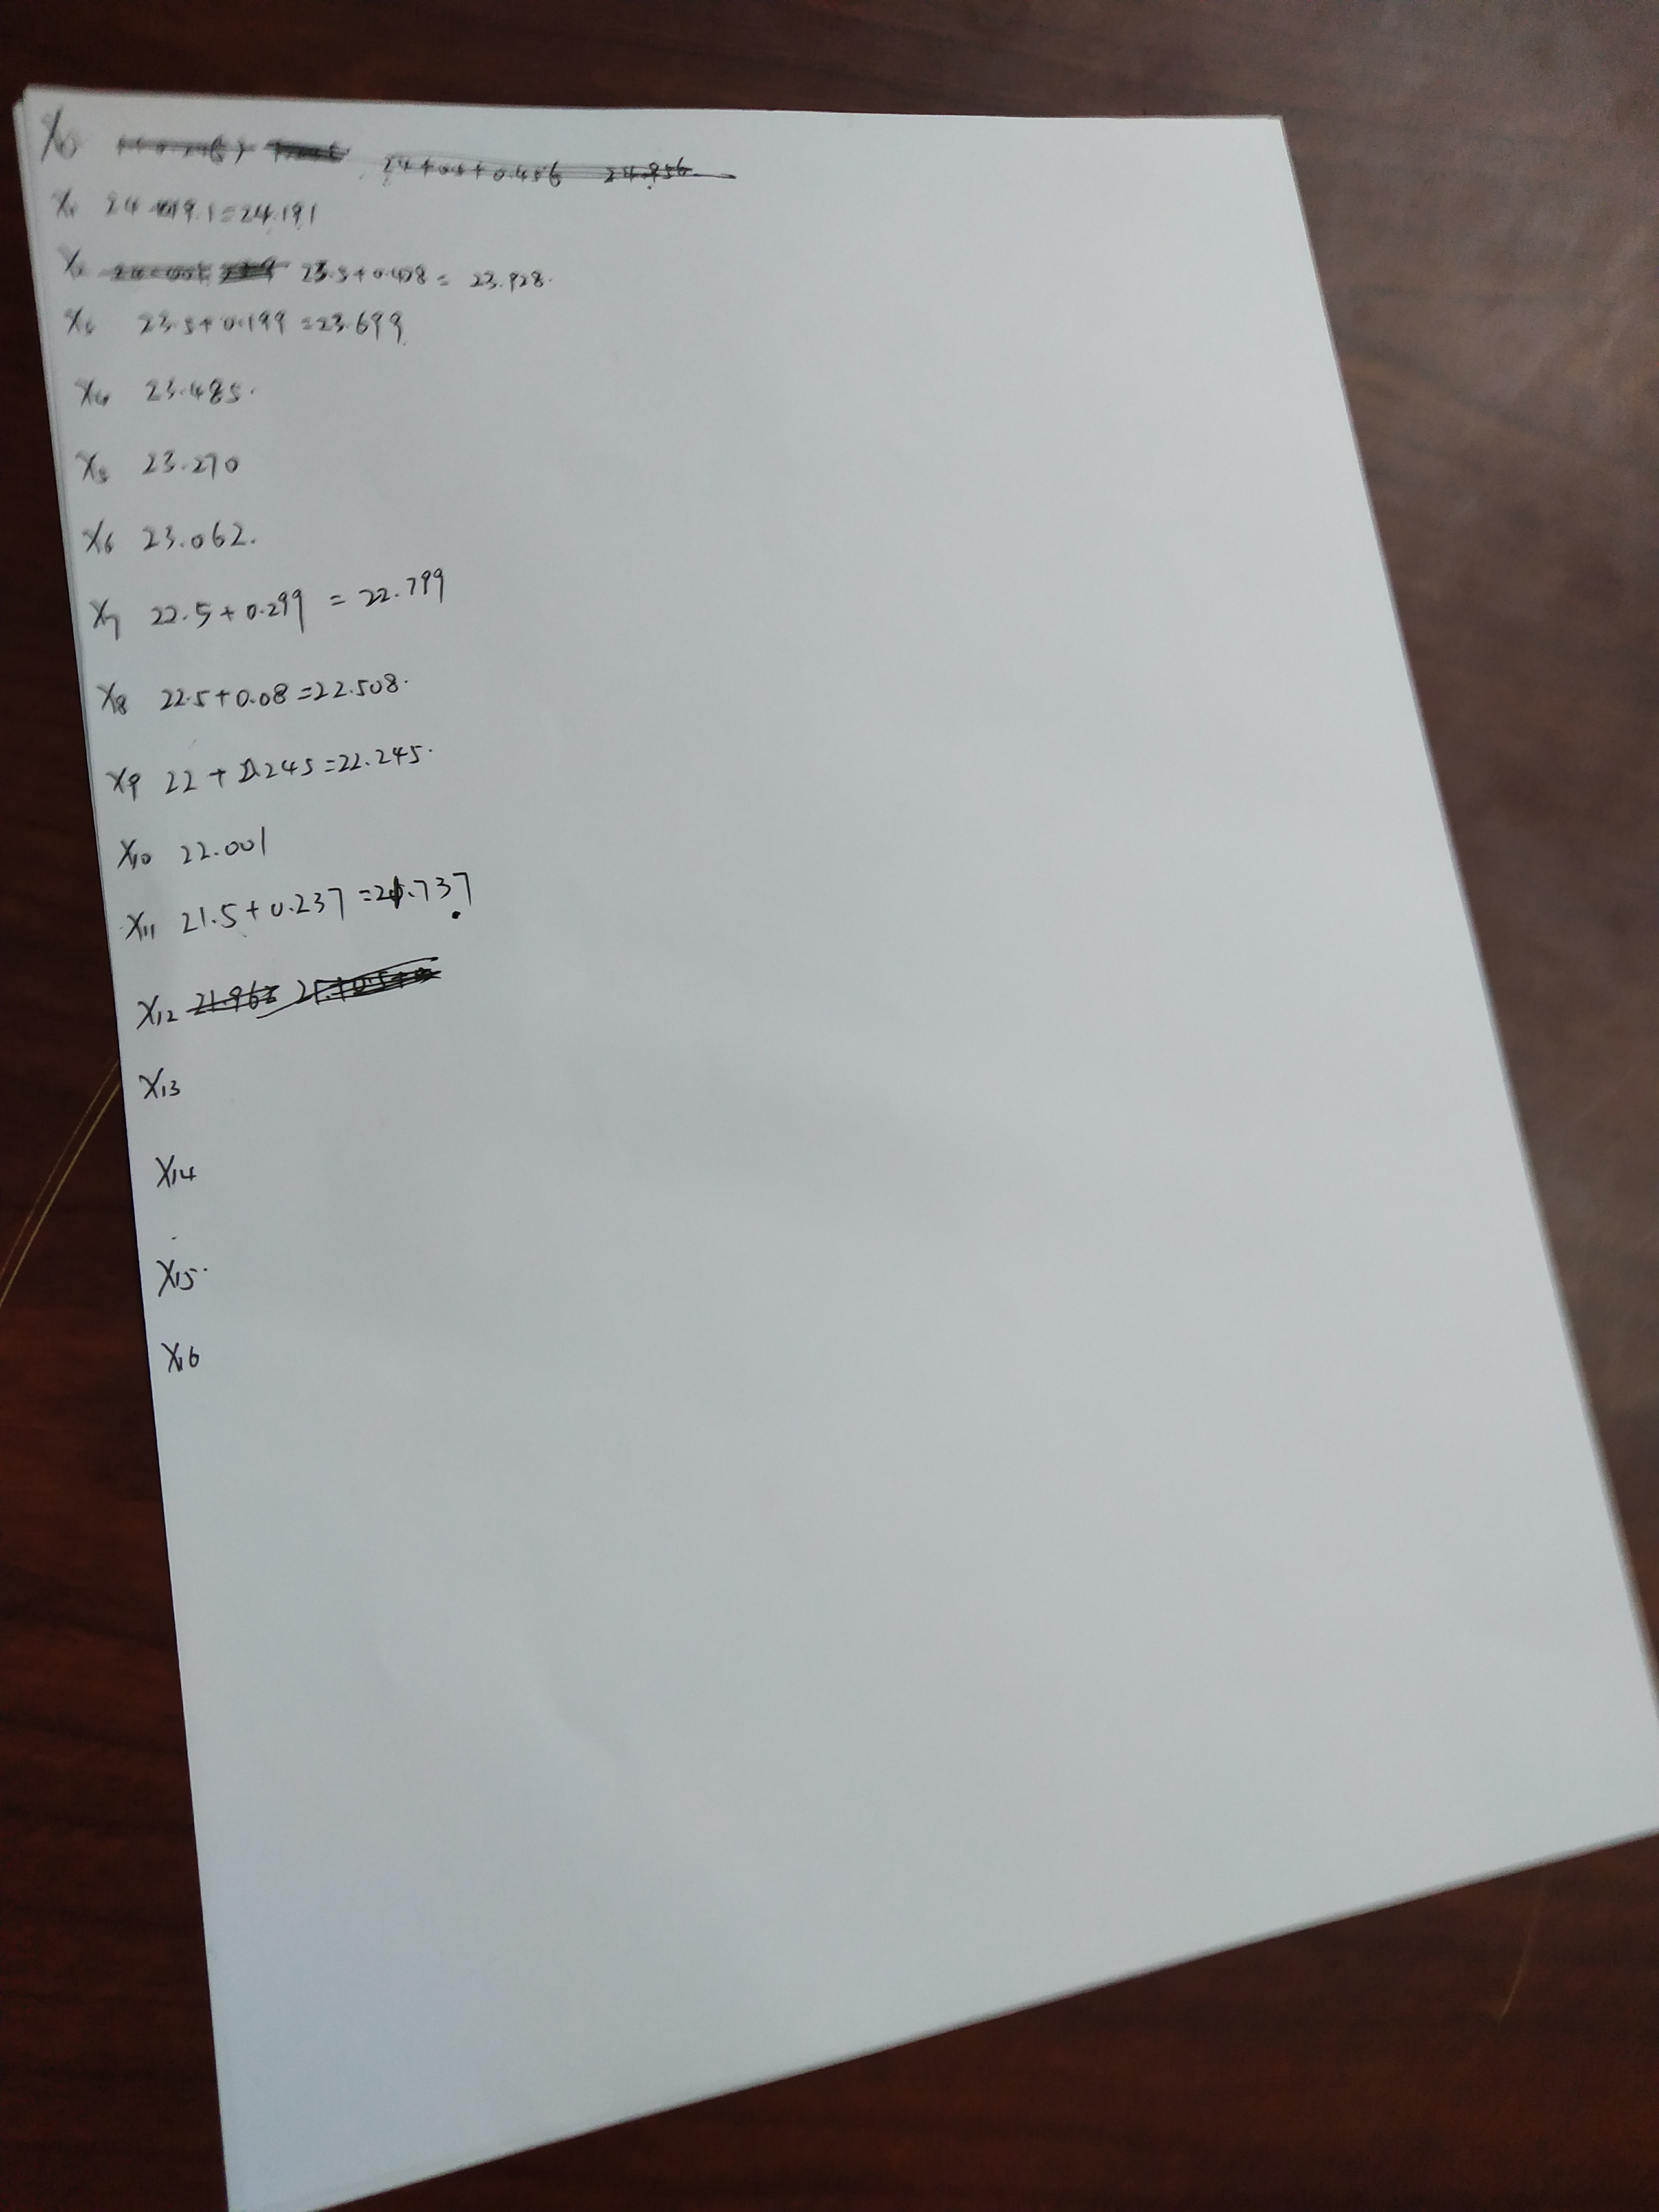 X0 24+0.5+0.456 24.956
X1 24 19.1=24.191
X2 23.5+0.428= 23.928.
X3 23.5+0.199=23.699
X4 23.485.
X5 23.270
X6 23.062.
X7 22.5+0.299 = 22.799
X8 22.5+0.08=22.508.
X9 22+0.245=22.245.
X10 22.001
X11 21.5+0.237=21.737
X12 21.963
X13
X14
X15
X16